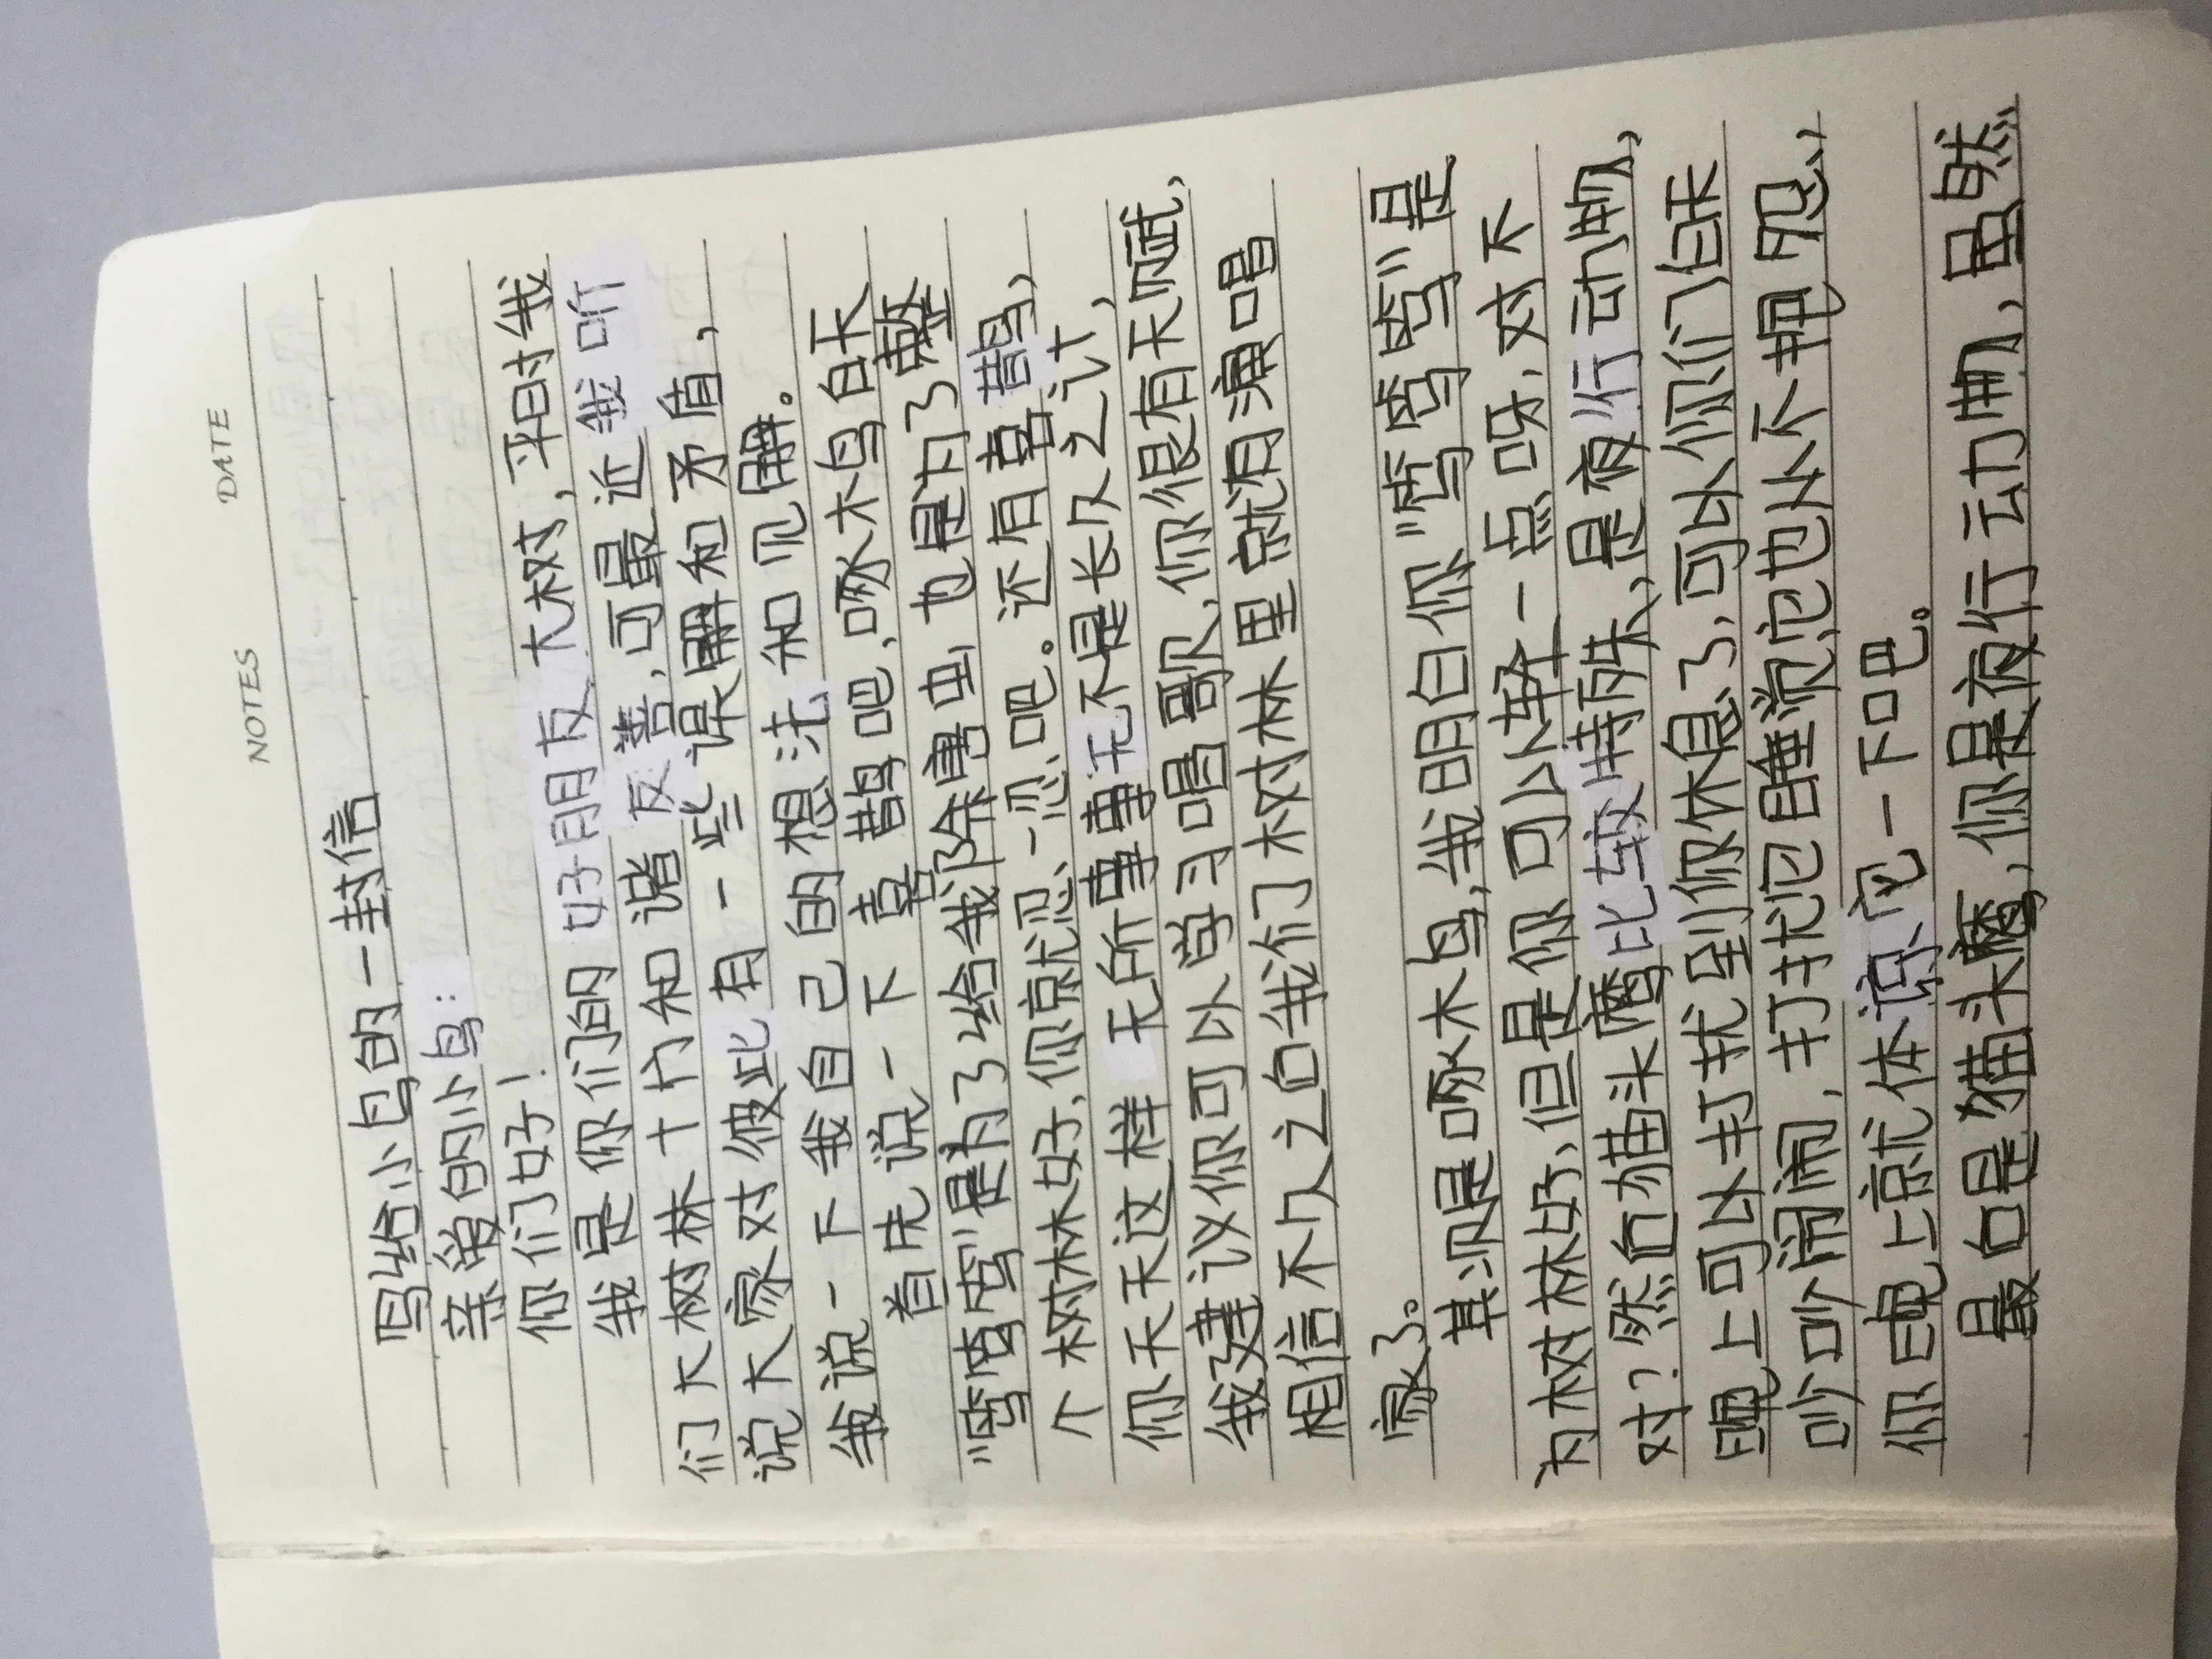 NOTES DATE
写给小鸟的一封信
亲爱的小鸟：
你们好！
我是你们的好朋友大树，平时我
们大树林十分和谐友善，可最近我听
说大家对彼此有一些误解和矛盾，
我说一下我自己的想法和见解。
首先说一下喜鹊吧，啄木鸟白天
"笃笃"是为了给我除害虫，也是为了整
个树林好，你就忍一忍吧。还有喜鹊，
你天天这样无所事事无不是长久之计，
我建议你可以学习唱歌，你很有天赋，
相信不久之后我们树林里就有演唱
家了。
其次是啄木鸟，我明白你"笃笃笃"是
为树林好，但是你可以轻一点呀，对不
对？然后猫头鹰比较特殊，是夜行动物，
晚上可以打扰到你休息了，可以你们白天
吵吵闹闹，打扰它睡觉它也从不抱怨，
你晚上就体谅它一下吧。
最后是猫头鹰，你是夜行动物，虽然